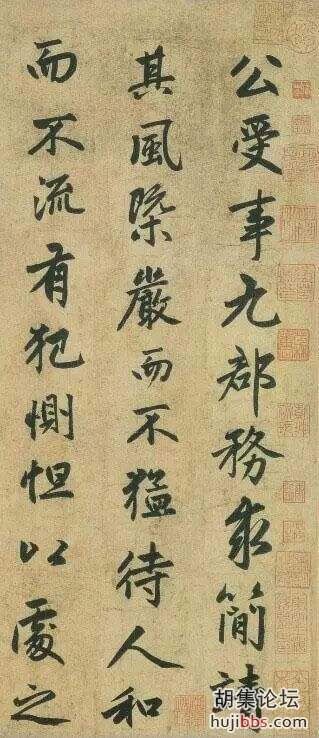 公受事九郡務求簡靖
其風槩嚴而不猛待人和
而不流有犯惻怛以處之
胡集论坛
hujibbs.com